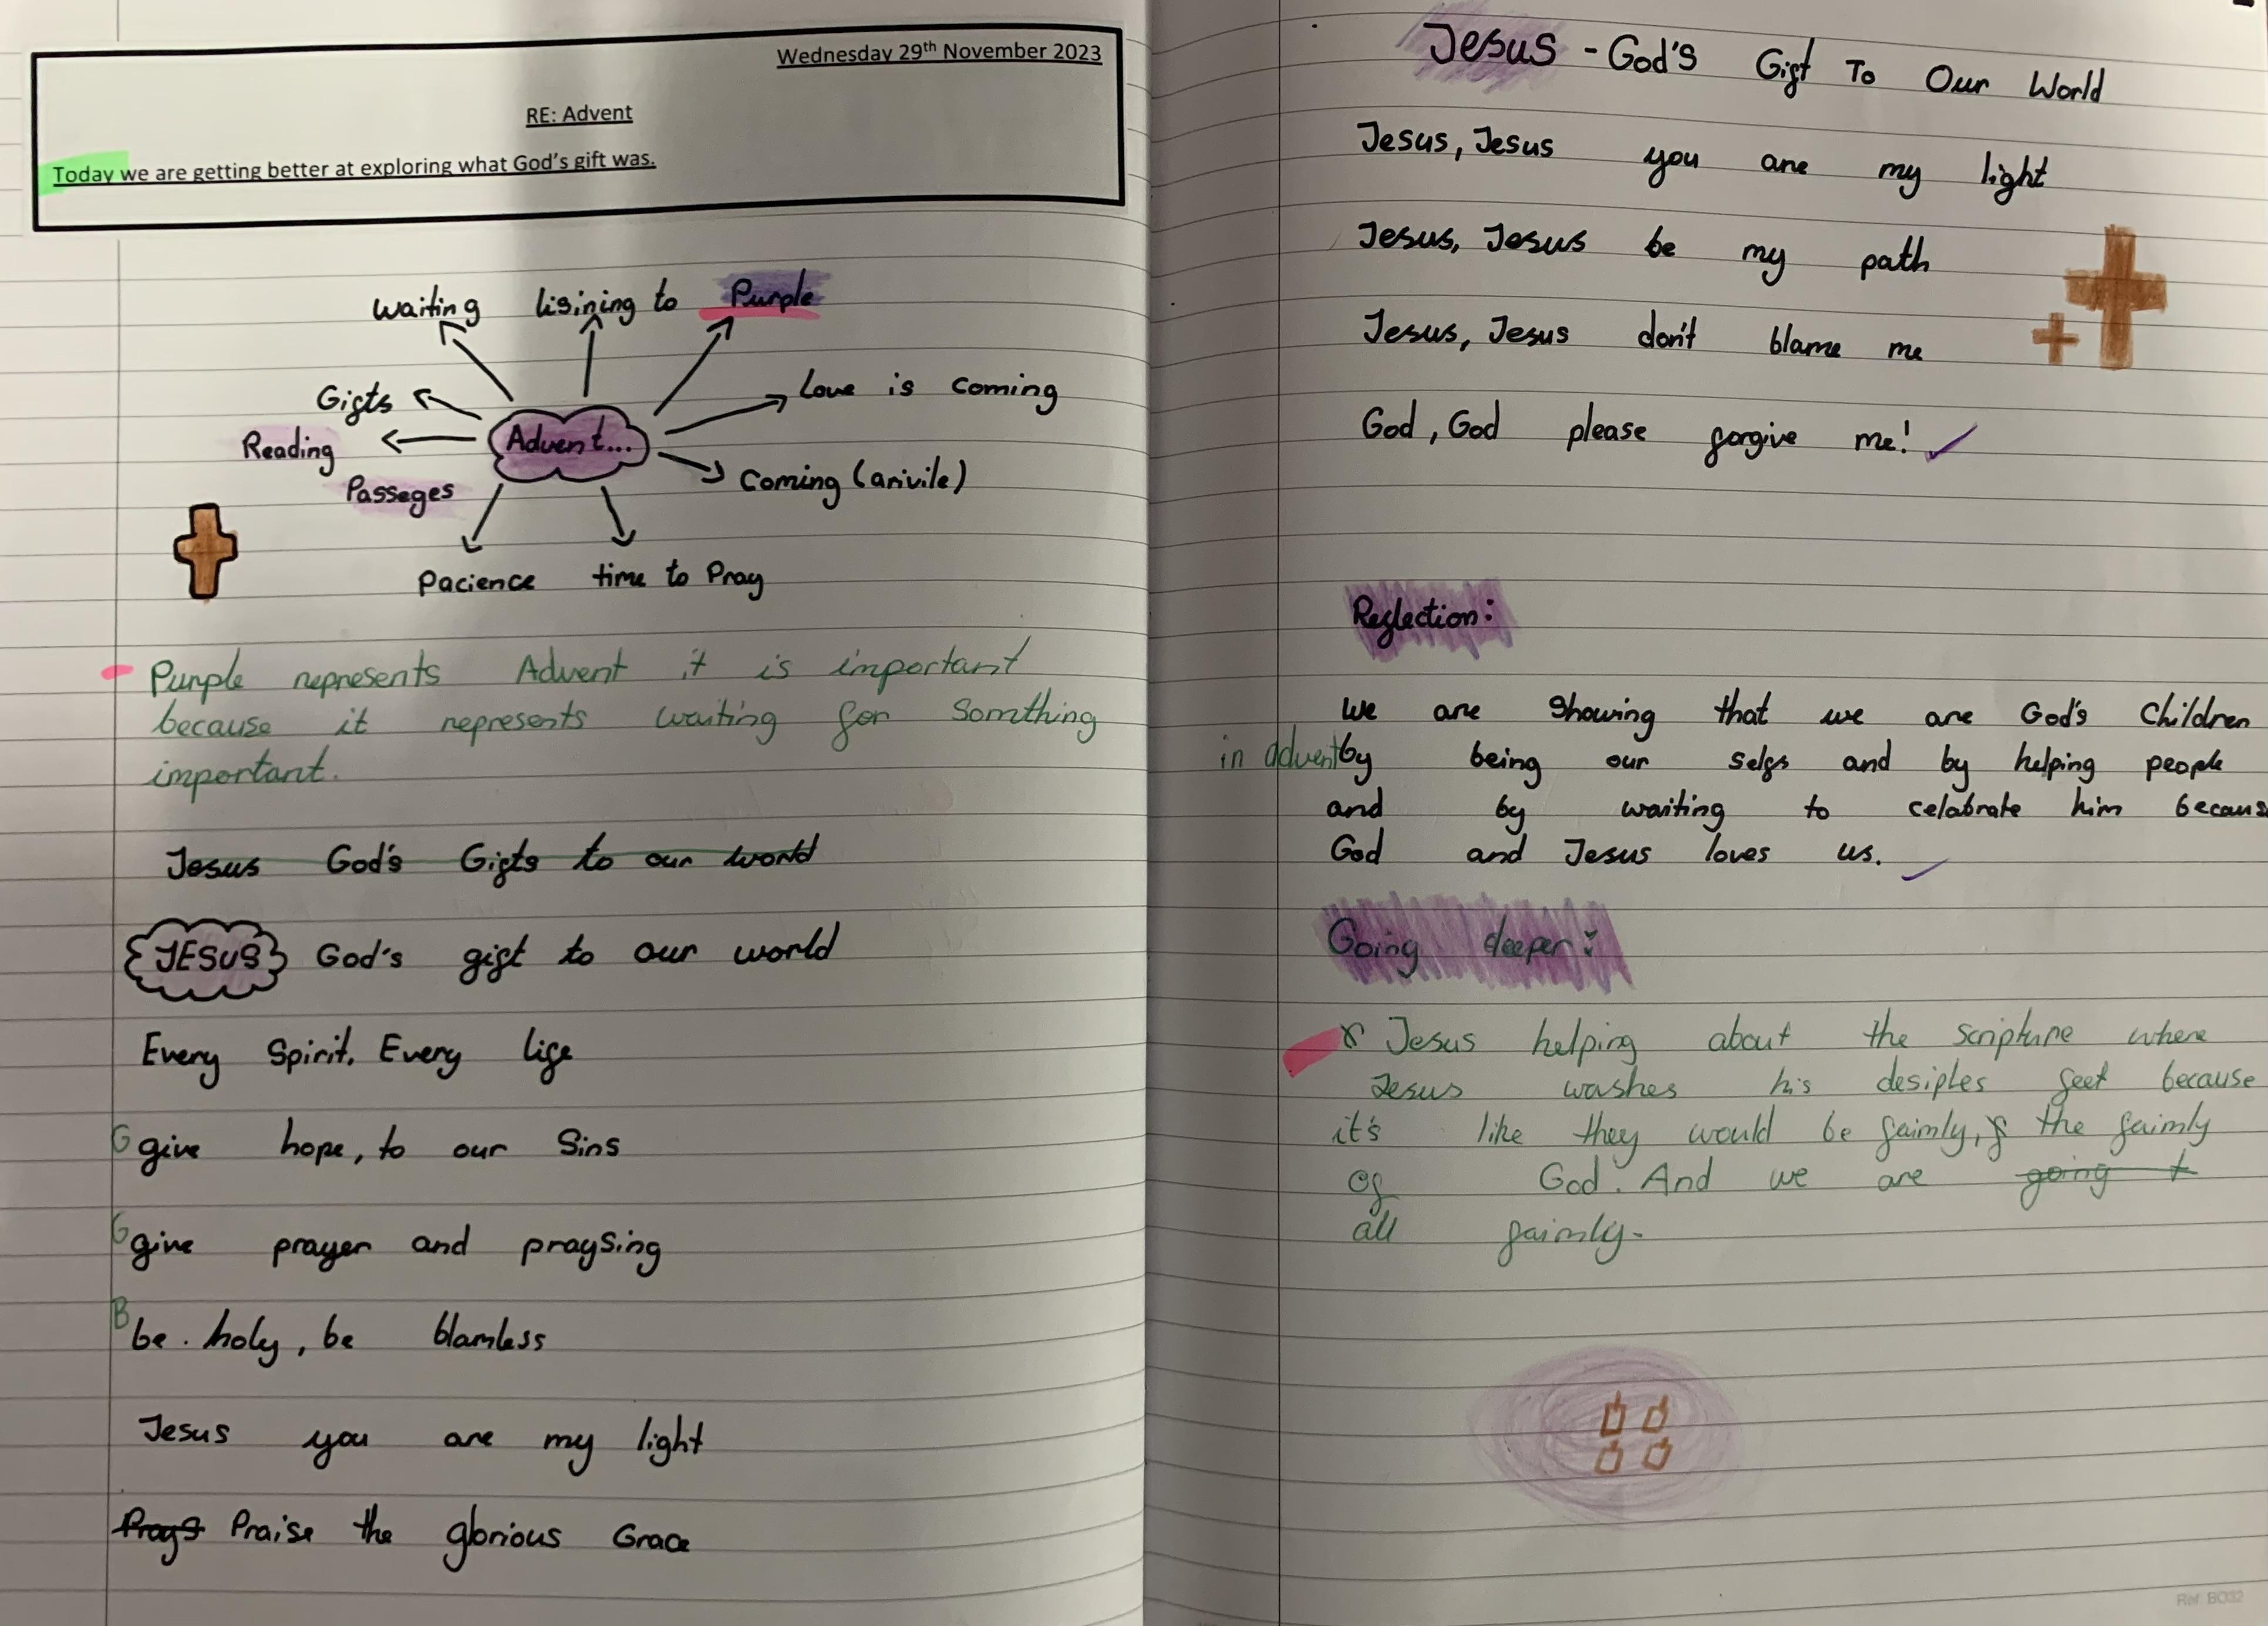 Wednesday 29th November 2023
RE: Advent
Today we are getting better at exploring what God's gift was.
waiting
lisining to
Purple
Gifts
Love is coming
Reading
Passeges
Advent...
Coming (arivile)
Pacience
time to Pray
Purple represents Advent it is important
because it represents waiting for somthing
important.
Jesus God's Gifts to our world
JESUS God's gift to our world
Every Spirit, Every life
G give hope, to our Sins
G give prayer and praysing
B be holy, be blamless
Jesus you are my light
Praise the glorious Grace
Jesus - God's Gift To Our World
Jesus, Jesus you are my light
Jesus, Jesus be my path
Jesus, Jesus don't blame me
God, God please forgive me!
Reflection:
We are showing that we are God's Children
in advent by being our selfs and by helping people
and by waiting to celabrate him becaus
God and Jesus loves us.
Going deeper:
Jesus helping about the scripture where
Jesus washes his desiples feet because
it's like they would be faimly, the faimly
of God. And we are going t
all faimly.
Ref: BO32